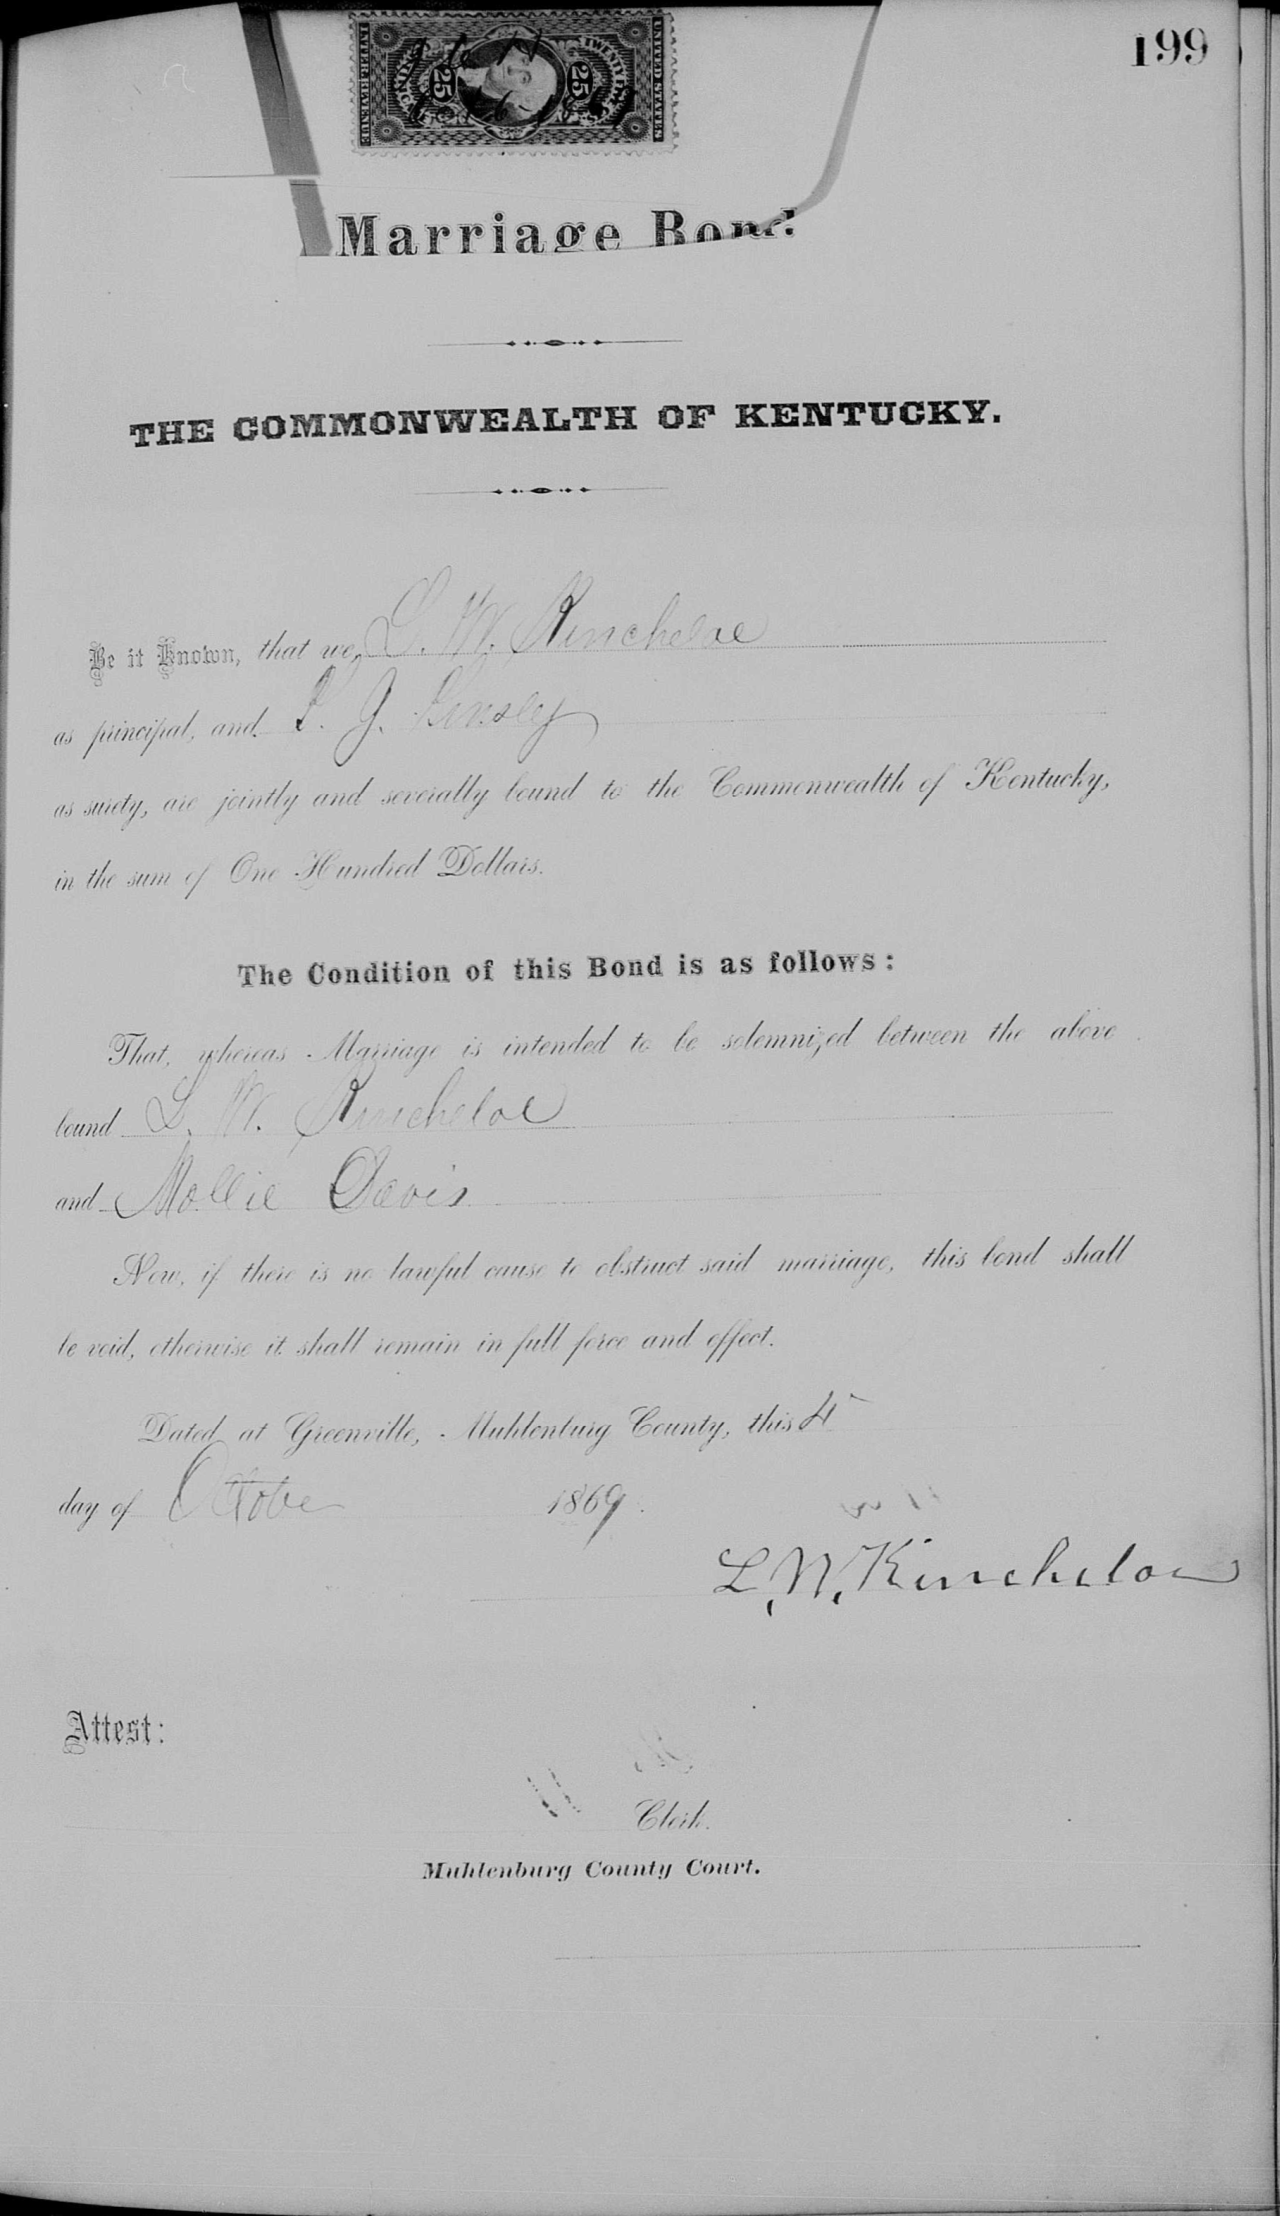 199
UNITED STATES
TWENTY FIVE CENTS
25 25
INTER. REVENUE
Marriage Bond.
THE COMMONWEALTH OF KENTUCKY.
Be it Known, that we, L. W. Kincheloe
as principal, and J.
as surety, are jointly and severally bound to the Commonwealth of Kentucky,
in the sum of One Hundred Dollars.
The Condition of this Bond is as follows:
That, whereas Marriage is intended to be solemnized between the above
bound L. W. Kincheloe
and Mollie Davis
Now, if there is no lawful cause to obstruct said marriage, this bond shall
be void, otherwise it shall remain in full force and effect.
Dated at Greenville, Muhlenburg County, this 4
day of Octobe 1869.
L. W. Kincheloe
Attest:
Clerk.
Muhlenburg County Court.